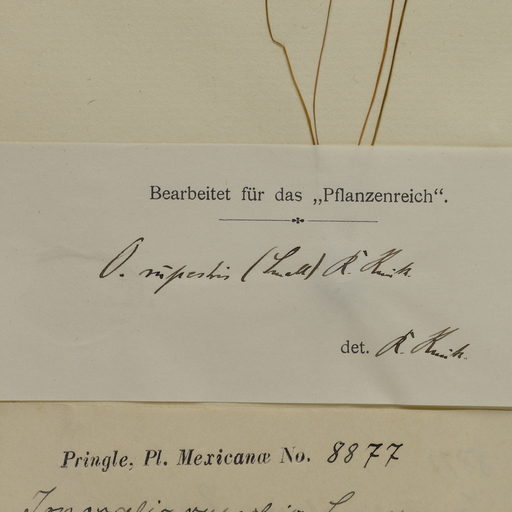 Bearbeitet für das „Pflanzenreich“.
O. rupestris (Small) R. Knuth.
det. R. Knuth.
Pringle, Pl. Mexicanæ No. 8877